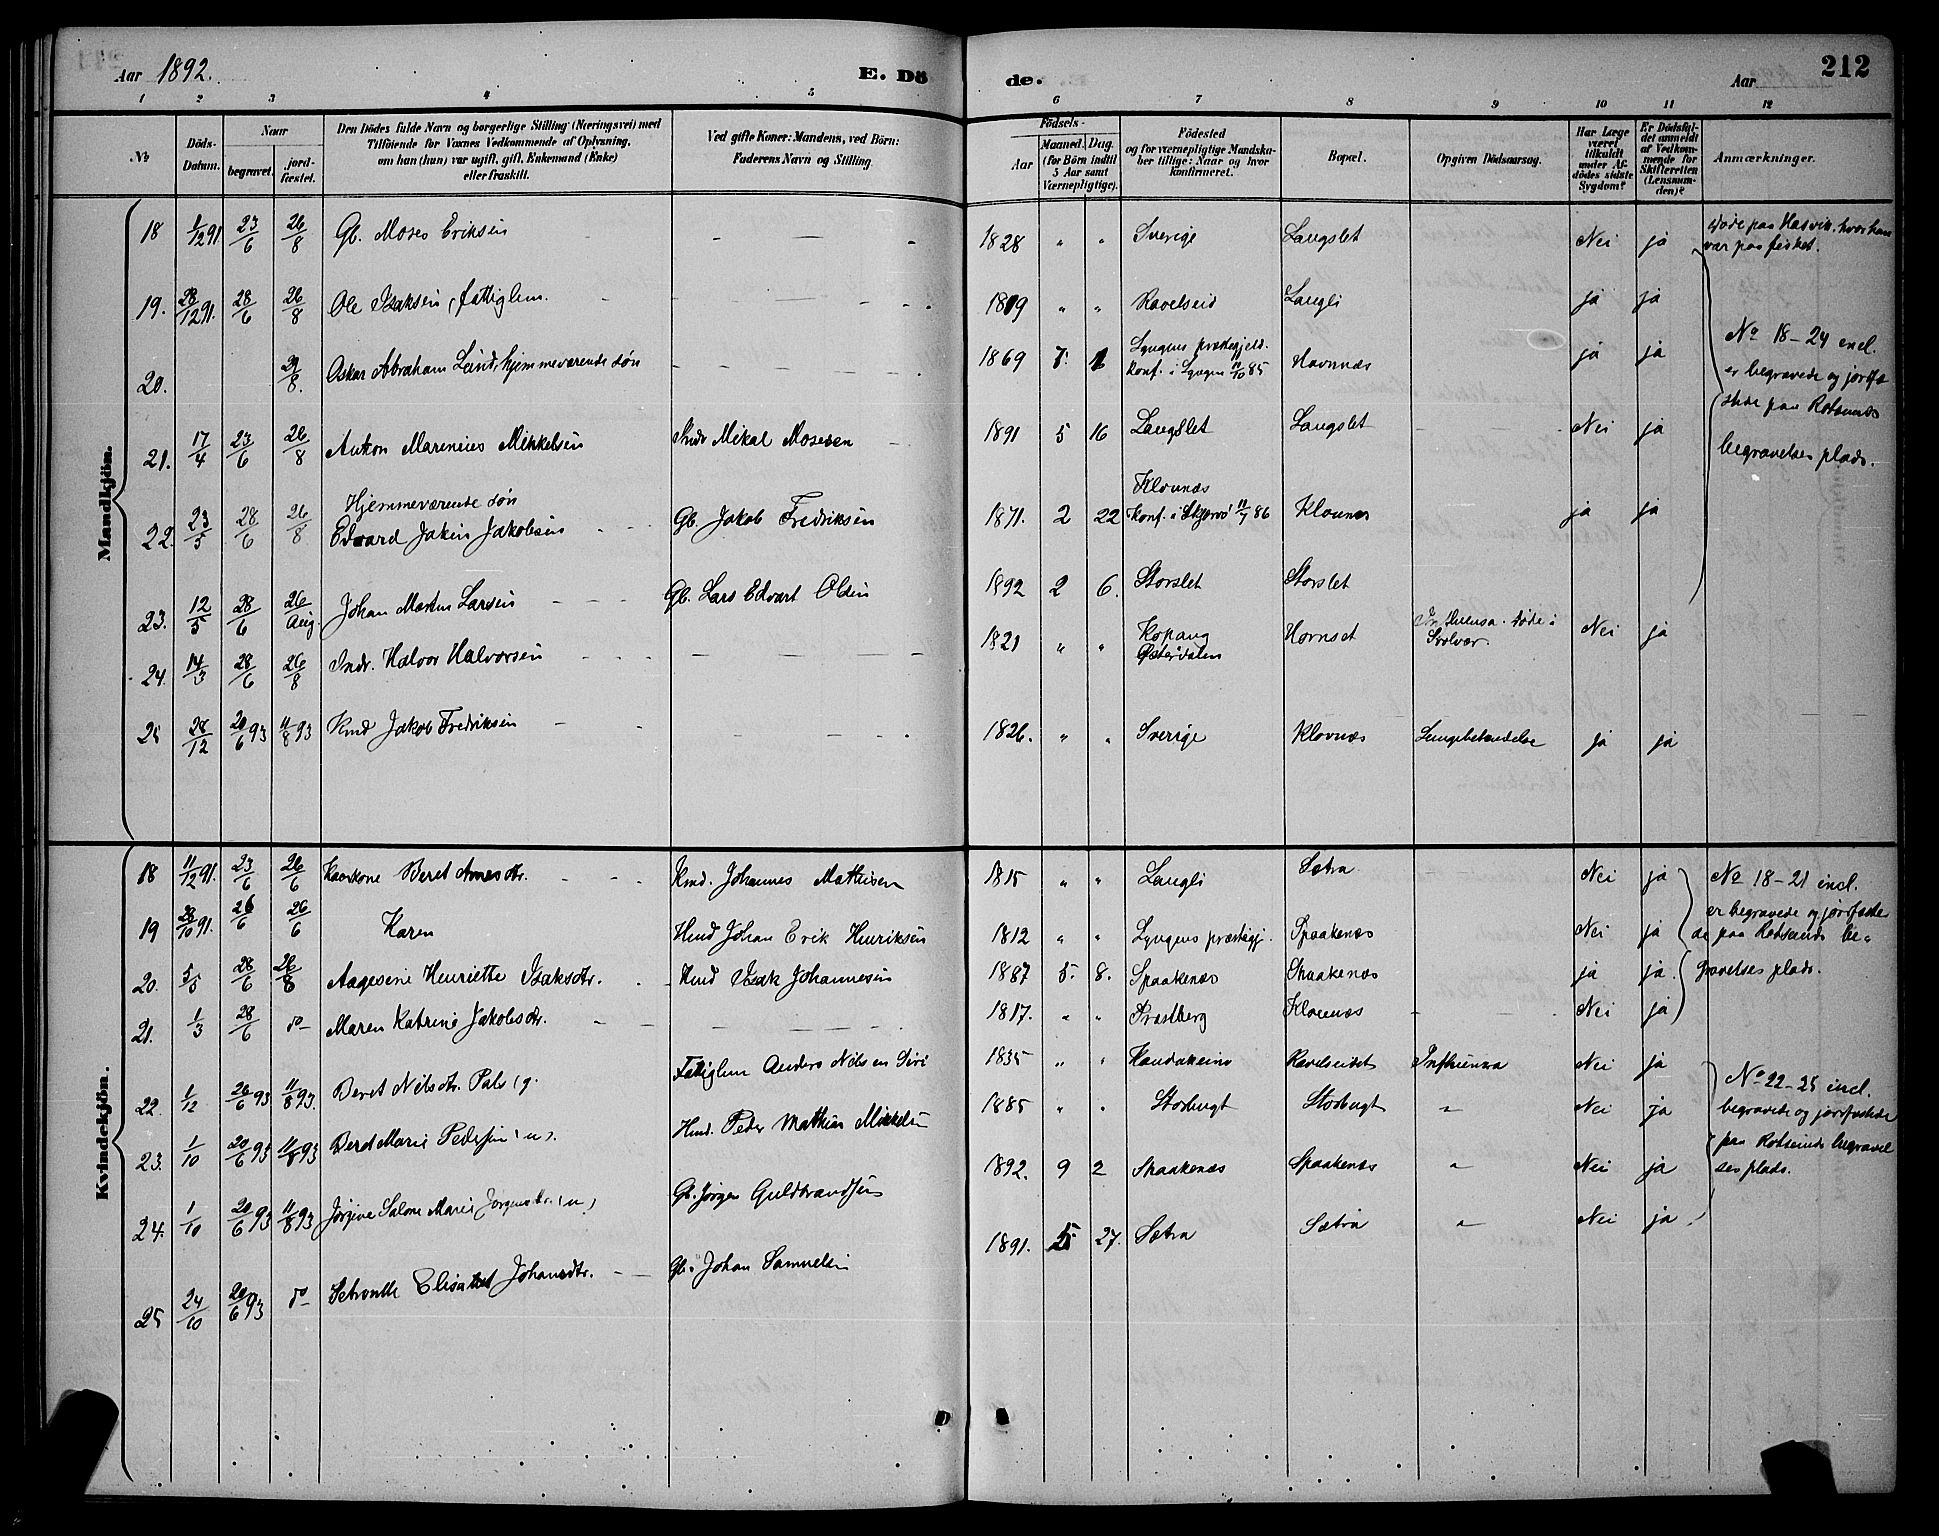 Aar 1892. E. Dö de. Aar 212
1 2 3 4 5 6 7 8 9 10 11 12
№ Döds-Datum. Naar begravet. jordfæstet. Den Dödes fulde Navn og borgerlige Stilling (Næringsvei) med Tilföiende for Voxnes Vedkommende af Oplysning, om han (hun) var ugift, gift, Enkemand (Enke) eller fraskilt. Ved gifte Koner: Mandens, ved Börn: Faderens Navn og Stilling. Födsels- Aar Maaned. Dag. (for Börn indtil 5 Aar samt Værnepligtige). Födested og for værnepligtige Mandskaber tillige: Naar og hvor konfirmeret. Bopæl. Opgiven Dödsaarsag. Har Læge været tilkaldt under Afdödes sidste Sygdom? Er Dödsfaldet anmeldt af Vedkommende for Skifteretten (Lensmanden)? Anmærkninger.
Mandkjön.
18 1/12 91 23/6 26/8 Gb. Moses Eriksen 1828 " " Sverige Langslet Nei ja Døde paa Hasvik, hvor han var paa fisket.
19. 28/12 91. 28/6 26/8 Ole Isaksen, fattiglem. 1819 " " Ravelseid Langli ja ja
20. 29/8. Oskar Abraham Lund, hjemmeværende søn 1869 7. 1 Lyngens præstegjeld. Konf. i Lyngen 11/10 85 Havnnæs ja ja
№ 18-24 incl. er begravede og jordfæstede paa Rotsunds begravelsesplads.
21. 17/4 23/6 26/8 Anton Marenius Mikkelsen Indr Mikal Mosesen 1891 5 16 Langslet Langslet Nei ja
22. 23/5 28/6 26/8 Hjemmeværende søn Edvard Jakin Jakobsen Gb. Jakob Fredriksen 1871. 2 22 Klovnæs Konf. i Skjervø 11/7 86 Klovnæs ja ja
23. 12/5 28/6 26/Aug. Johan Morten Larsen Gb. Lars Edvart Olsen 1892 2 6. Storslet Storslet
24. 14/3 28/6 26/8 Indr. Halvor Halvorsen 1821 " " Kopang Østerdalen Hornset Influensa. Døde i Svolvær. Nei ja
25 28/12 20/6 93 11/8 93 Kmd Jakob Fredriksen 1826. " " Sverige Klovnæs Lungebetændelse ja ja
Kvindekjön.
18 11/12 91. 23/6 26/6 Kaarkone Beret Arnesdtr. Kmd. Johannes Mathisen 1815 " " Langli Sætra Nei ja № 18-21 incl. er begravede og jordfæstede paa Rotsunds begravelsesplads.
19 28/10 91. 26/6 26/6 Karen Hmd Johan Erik Henriksen 1812 " " Lyngens præstegj. Spaakenæs Nei ja
20. 5/5 28/6 26/8 Aagesine Henriette Isaksdtr. Hmd Isak Johannesen 1887 5. 8. Spaakenæs Spaakenæs ja ja.
21. 1/3 28/6 do Maren Katrine Jakobsdtr. 1817. " " Klovnæs Nei ja
22. 1/12 20/6 93 11/8 93. Beret Nilsdtr. Pals (g. Fattiglem Anders Nilsen Siri 1835 " " Kautokeino Ravelseidet Influensa Nei ja № 22-25 incl. begravede og jordfæstede paa Rotsunds begravelsesplads.
23. 1/10 20/6 93 11/8 93 Beret Marie Pedersen (u). Hmd. Peder Mathias Mikkelsen 1885 " " Storbugt Storbugt " Nei ja
24. 1/10 20/6 93 11/8 93 Jørgine Salone Marie Jørgensdtr. (u) Gb. Jørgen Guldbrandsen 1892. 9 2 Spaakenæs Spaakenæs " Nei ja
25 24/10 20/6 93 do Elisabet Johansdtr. Gb. Johan Samuelsen 1891. 5 27. Sætra Sætra " Nei ja